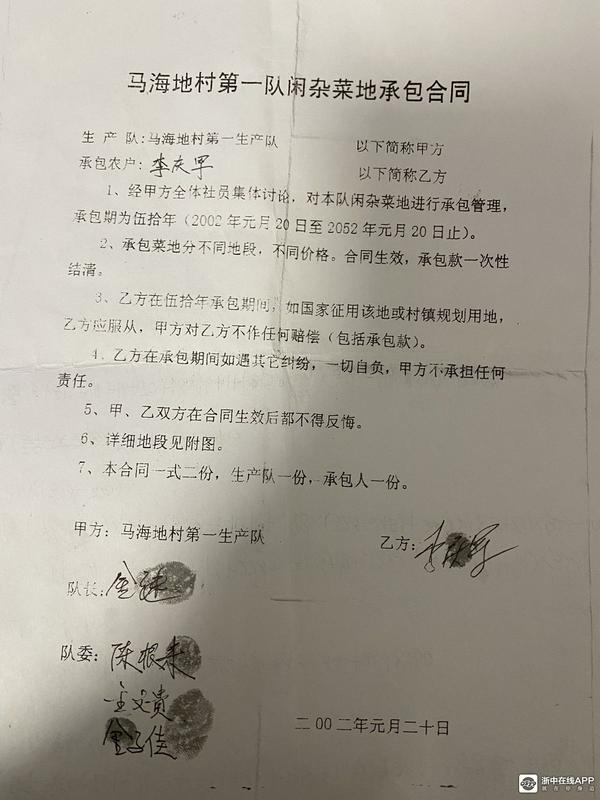 马海地村第一队闲杂菜地承包合同
生 产 队:马海地村第一生产队 以下简称甲方
承包农户: 李庆军 以下简称乙方
1、经甲方全体社员集体讨论，对本队闲杂菜地进行承包管理，
承包期为伍拾年（2002 年元月 20 日至 2052 年元月 20 日止）。
2、承包菜地分不同地段，不同价格。合同生效，承包款一次性
结清。
3、乙方在伍拾年承包期间，如国家征用该地或村镇规划用地，
乙方应服从，甲方对乙方不作任何赔偿（包括承包款）。
4、乙方在承包期间如遇其它纠纷，一切自负，甲方不承担任何
责任。
5、甲、乙双方在合同生效后都不得反悔。
6、详细地段见附图。
7、本合同一式二份，生产队一份，承包人一份。
甲方：马海地村第一生产队 乙方：李庆军
队长:
队委：陈根来
金子佳
二 00 二年元月二十日
浙中在线APP
就在你身边